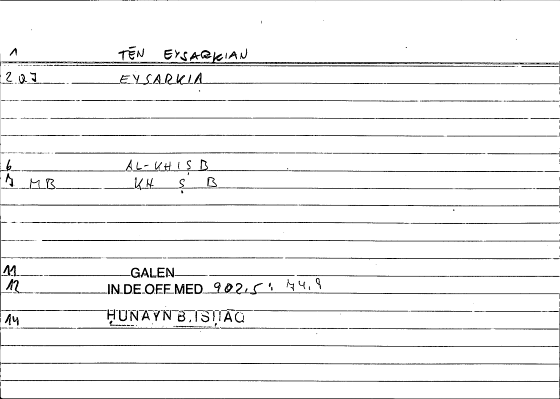 1 TĒN EYSARKIAN
2 EYSARKIA
6 AL-KHIṢB
7 MB KH Ṣ B
11 GALEN
12 IN DE OFF MED 902,5 : 
14 ḤUNAYN B. ISḤĀQ